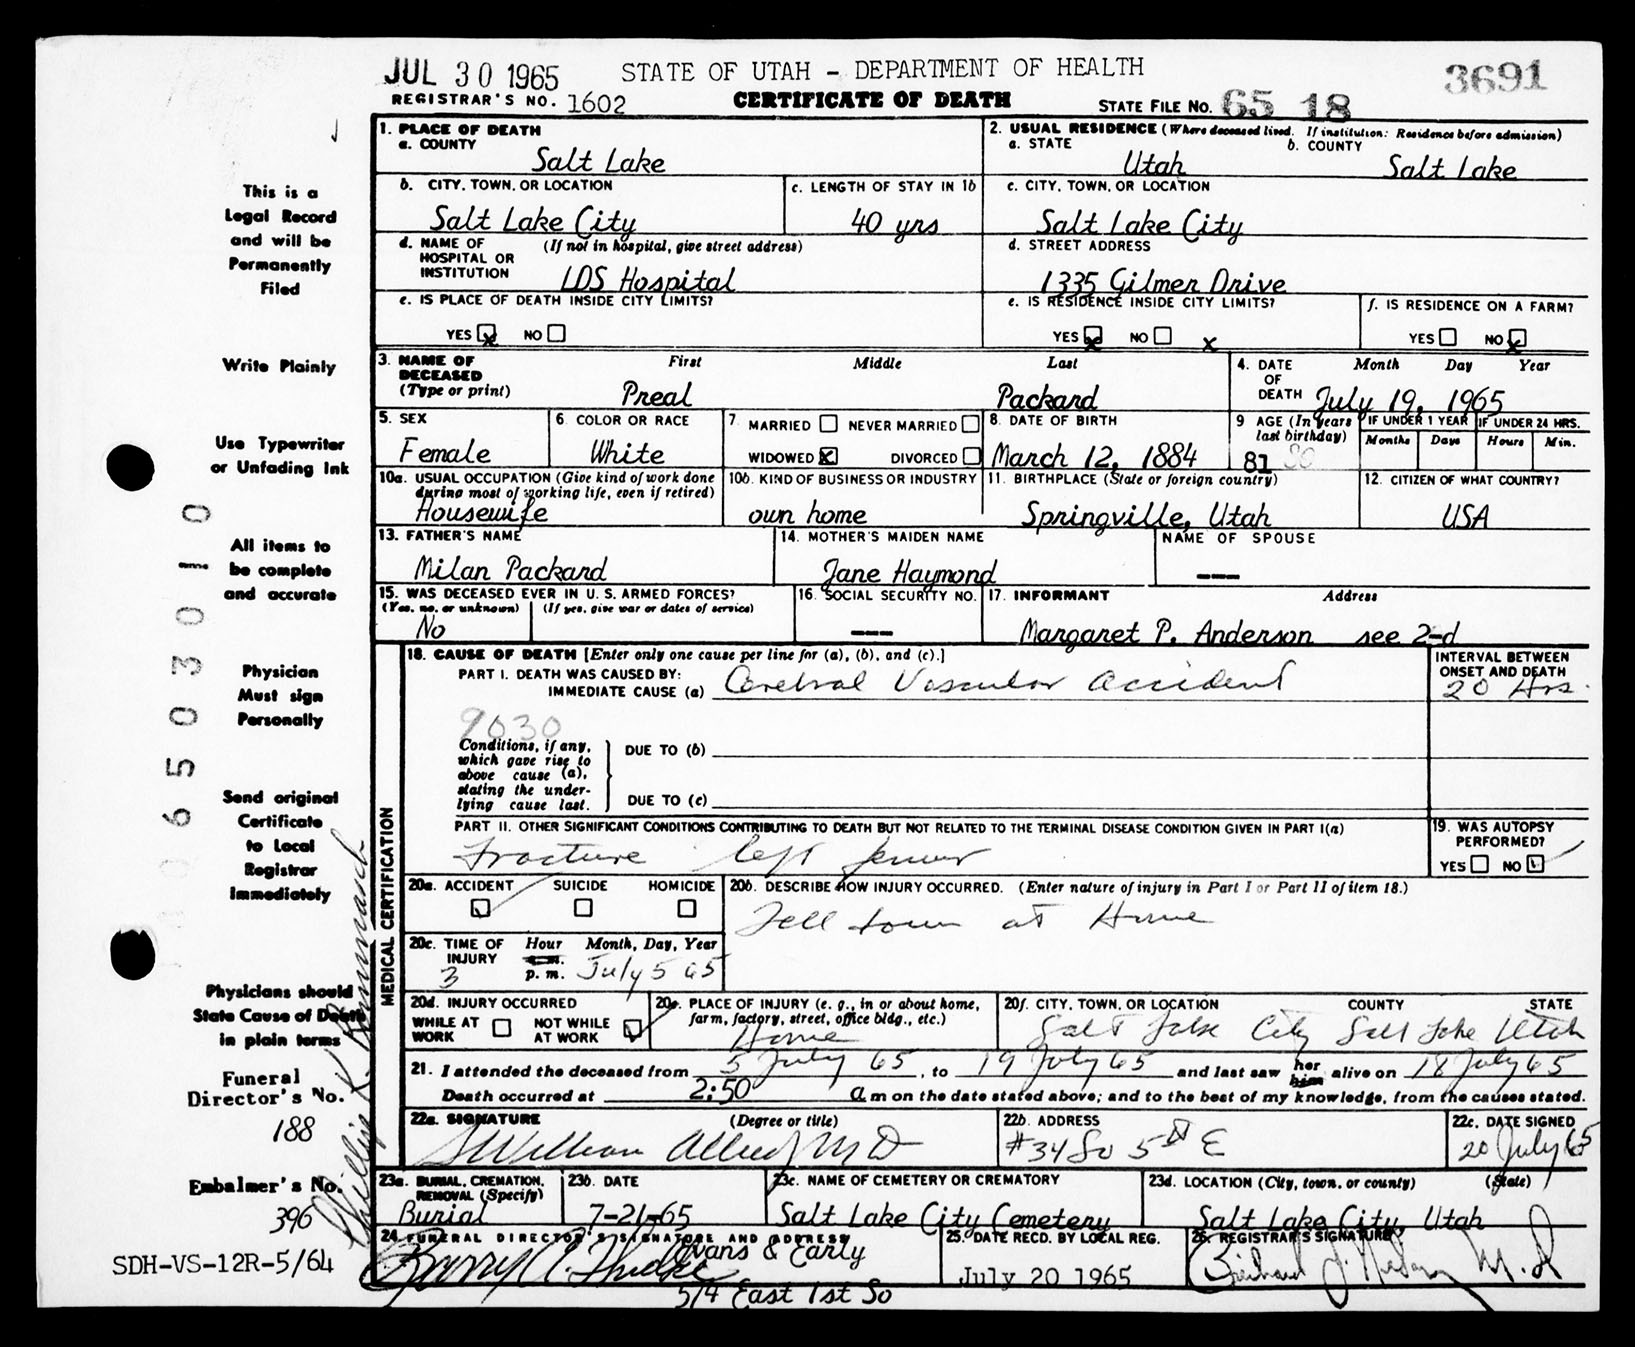 JUL 30 1965 STATE OF UTAH - DEPARTMENT OF HEALTH 3691
REGISTRAR'S NO. 1602 CERTIFICATE OF DEATH STATE FILE NO. 65 18
1. PLACE OF DEATH
a. COUNTY
Salt Lake
2. USUAL RESIDENCE (Where deceased lived. If institution: Residence before admission)
a. STATE b. COUNTY
Utah Salt Lake
b. CITY, TOWN, OR LOCATION c. LENGTH OF STAY IN 1b c. CITY, TOWN, OR LOCATION
Salt Lake City 40 yrs Salt Lake City
d. NAME OF (If not in hospital, give street address)
HOSPITAL OR
INSTITUTION
LDS Hospital
d. STREET ADDRESS
1335 Gilmer Drive
e. IS PLACE OF DEATH INSIDE CITY LIMITS? e. IS RESIDENCE INSIDE CITY LIMITS? f. IS RESIDENCE ON A FARM?
YES x NO YES x NO x YES NO x
3. NAME OF First Middle Last
DECEASED
(Type or print)
Preal Packard
4. DATE Month Day Year
OF
DEATH July 19, 1965
5. SEX 6 COLOR OR RACE
Female White
7 MARRIED NEVER MARRIED
WIDOWED x DIVORCED
8. DATE OF BIRTH
March 12, 1884
9 AGE (In years
last birthday)
81 80
IF UNDER 1 YEAR IF UNDER 24 HRS.
Months Days Hours Min.
10a. USUAL OCCUPATION (Give kind of work done
during most of working life, even if retired)
Housewife
10b. KIND OF BUSINESS OR INDUSTRY
own home
11. BIRTHPLACE (State or foreign country)
Springville, Utah
12. CITIZEN OF WHAT COUNTRY?
USA
13. FATHER'S NAME 14. MOTHER'S MAIDEN NAME NAME OF SPOUSE
Milan Packard Jane Haymond ---
15. WAS DECEASED EVER IN U. S. ARMED FORCES?
(Yes, no, or unknown) (If yes, give war or dates of service)
No
16. SOCIAL SECURITY NO.
---
17. INFORMANT Address
Margaret P. Anderson see 2-d
MEDICAL CERTIFICATION
18. CAUSE OF DEATH [Enter only one cause per line for (a), (b), and (c).]
PART I. DEATH WAS CAUSED BY:
IMMEDIATE CAUSE (a) Cerebral Vascular Accident
INTERVAL BETWEEN
ONSET AND DEATH
20 Hrs.
9030
Conditions, if any,
which gave rise to
above cause (a),
stating the under-
lying cause last.
DUE TO (b)
DUE TO (c)
PART II. OTHER SIGNIFICANT CONDITIONS CONTRIBUTING TO DEATH BUT NOT RELATED TO THE TERMINAL DISEASE CONDITION GIVEN IN PART I(a)
Fracture left femur
19. WAS AUTOPSY
PERFORMED?
YES NO
20a. ACCIDENT SUICIDE HOMICIDE
20b. DESCRIBE HOW INJURY OCCURRED. (Enter nature of injury in Part I or Part II of item 18.)
Fell down at Home
20c. TIME OF Hour Month, Day, Year
INJURY a.m.
3 p.m. July 5 65
20d. INJURY OCCURRED
WHILE AT NOT WHILE
WORK AT WORK
20e. PLACE OF INJURY (e. g., in or about home,
farm, factory, street, office bldg., etc.)
Home
20f. CITY, TOWN, OR LOCATION COUNTY STATE
Salt Lake City Salt Lake Utah
21. I attended the deceased from 5 July 65, to 19 July 65 and last saw her him alive on 18 July 65
Death occurred at 2:50 a m on the date stated above; and to the best of my knowledge, from the causes stated.
22a. SIGNATURE (Degree or title) 22b. ADDRESS 22c. DATE SIGNED
William Allred MD #34 So 5th E 20 July 65
23a. BURIAL, CREMATION,
REMOVAL (Specify)
Burial
23b. DATE
7-21-65
23c. NAME OF CEMETERY OR CREMATORY
Salt Lake City Cemetery
23d. LOCATION (City, town, or county) (State)
Salt Lake City, Utah
24 FUNERAL DIRECTOR'S SIGNATURE AND ADDRESS
Evans & Early
574 East 1st So
25. DATE RECD. BY LOCAL REG.
July 20 1965
26. REGISTRAR'S SIGNATURE
M.D
This is a
Legal Record
and will be
Permanently
Filed
Write Plainly
Use Typewriter
or Unfading Ink
All items to
be complete
and accurate
Physician
Must sign
Personally
Send original
Certificate
to Local
Registrar
immediately
Physicians should
State Cause of Death
in plain terms
Funeral
Director's No.
188
Embalmer's No.
396
SDH-VS-12R-5/64